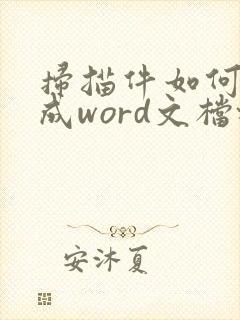 掃描件如何
成word文檔
安沐夏